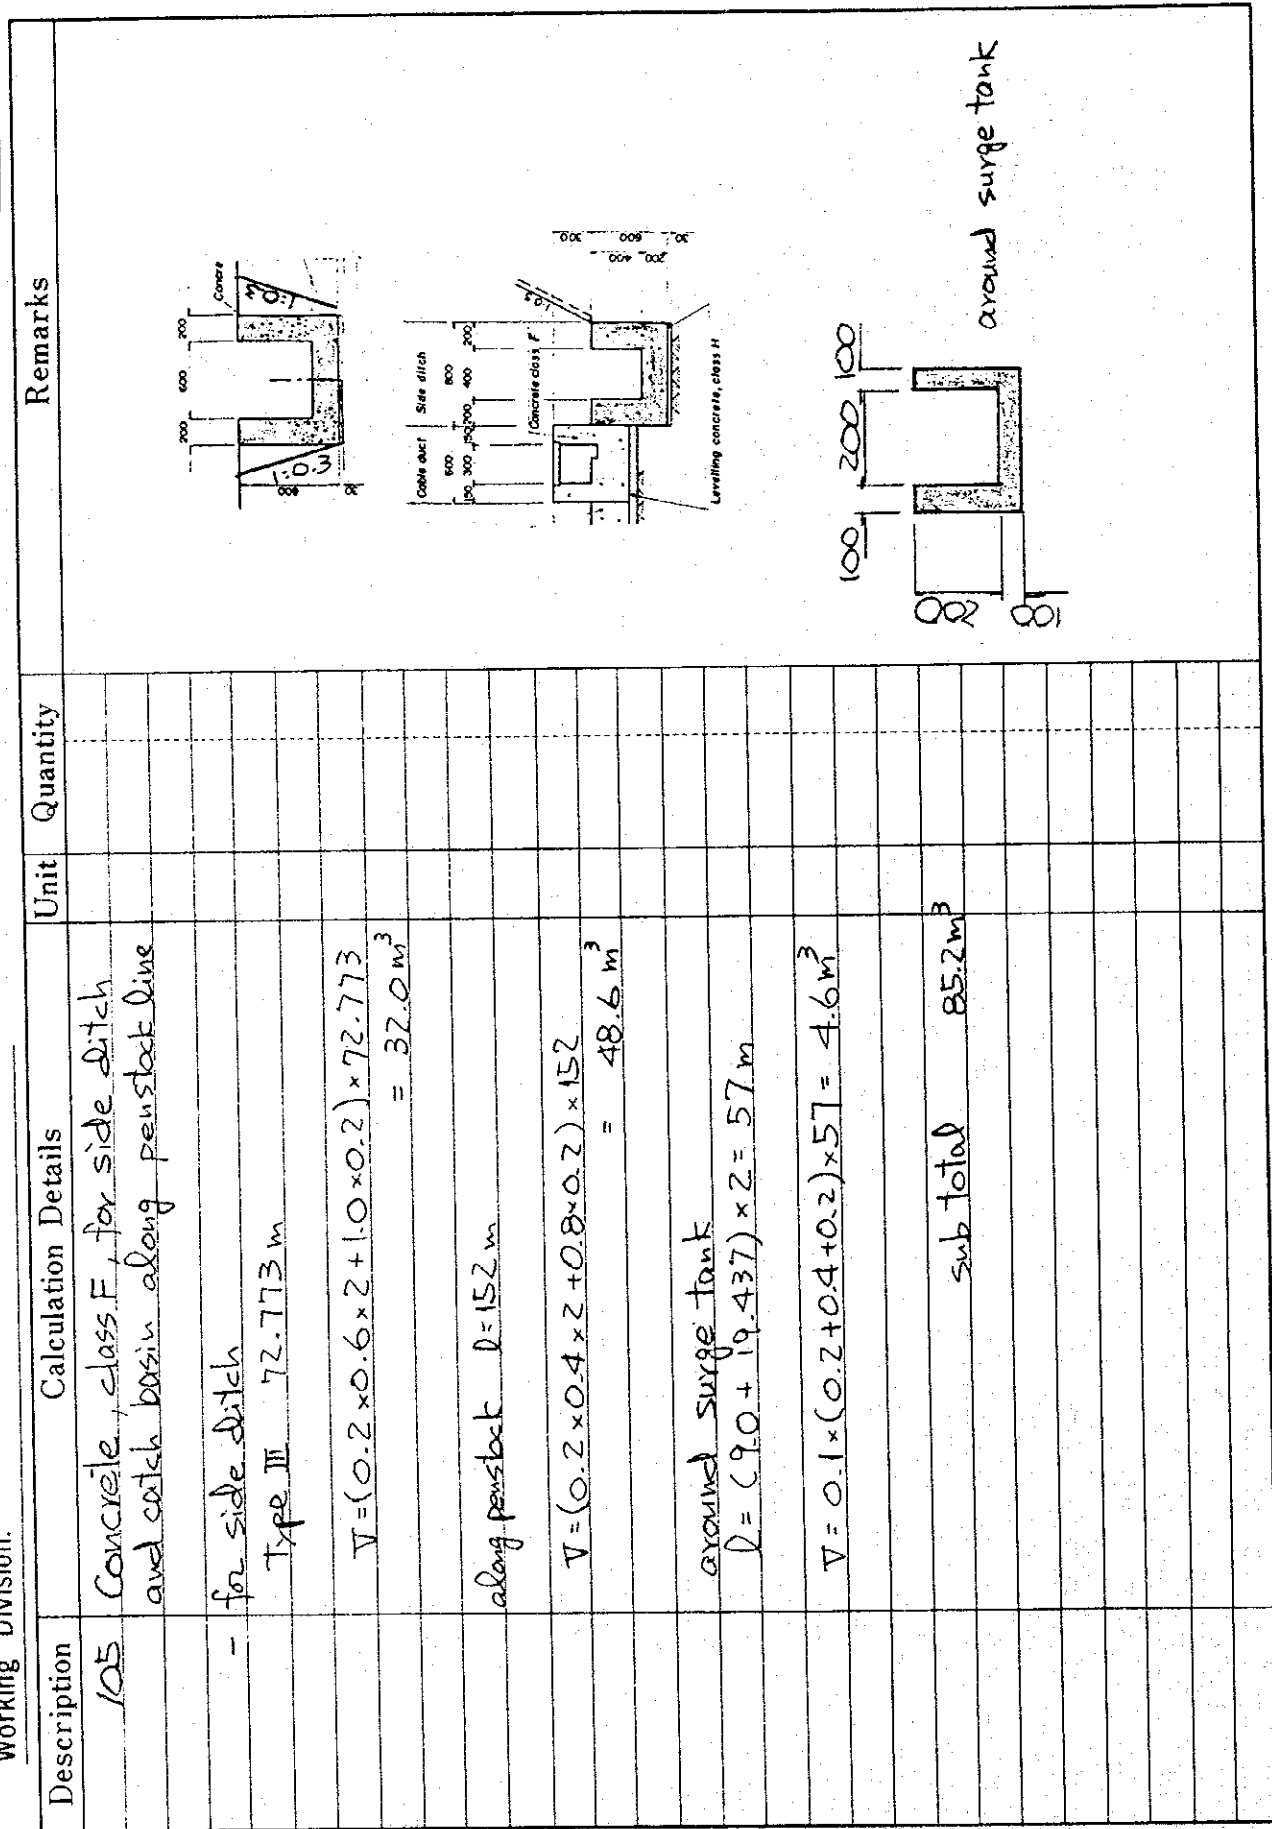 Working Division.
Description Calculation Details Unit Quantity Remarks
105 Concrete, class F, for side ditch
and catch basin along penstock line
- for side ditch
Type III 72.773 m
V=(0.2×0.6×2+1.0×0.2)×72.773
= 32.0 m³
along penstock l=152 m
V=(0.2×0.4×2+0.8×0.2)×152
= 48.6 m³
around surge tank
l=(9.0+19.437)×2=57 m
V=0.1×(0.2+0.4+0.2)×57=4.6 m³
sub total 85.2 m³
200 600 200
Concre
1:0.3
1:0.3
Cable duct Side ditch
600 800
150 300 150 200 400 200
Concrete class F
1:0.3
300
400 600
200
30
Levelling concrete, class H
100 200 100
200
100
around surge tank